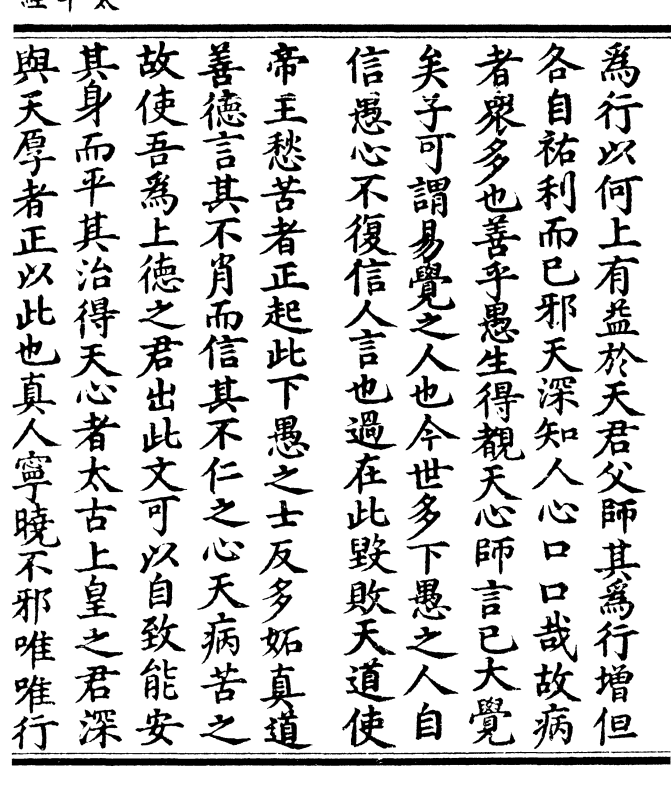 爲行以何上有益於天君父師其爲行增但
各自祐利而已邪天深知人心口口哉故病
者衆多也善乎愚生得覩天心師言已大覺
矣子可謂易覺之人也今世多下愚之人自
信愚心不復信人言也過在此毀敗天道使
帝王愁苦者正起此下愚之士反多妬真道
善德言其不肖而信其不仁之心天病苦之
故使吾爲上德之君出此文可以自致能安
其身而平其治得天心者太古上皇之君深
與天厚者正以此也真人寧曉不邪唯唯行